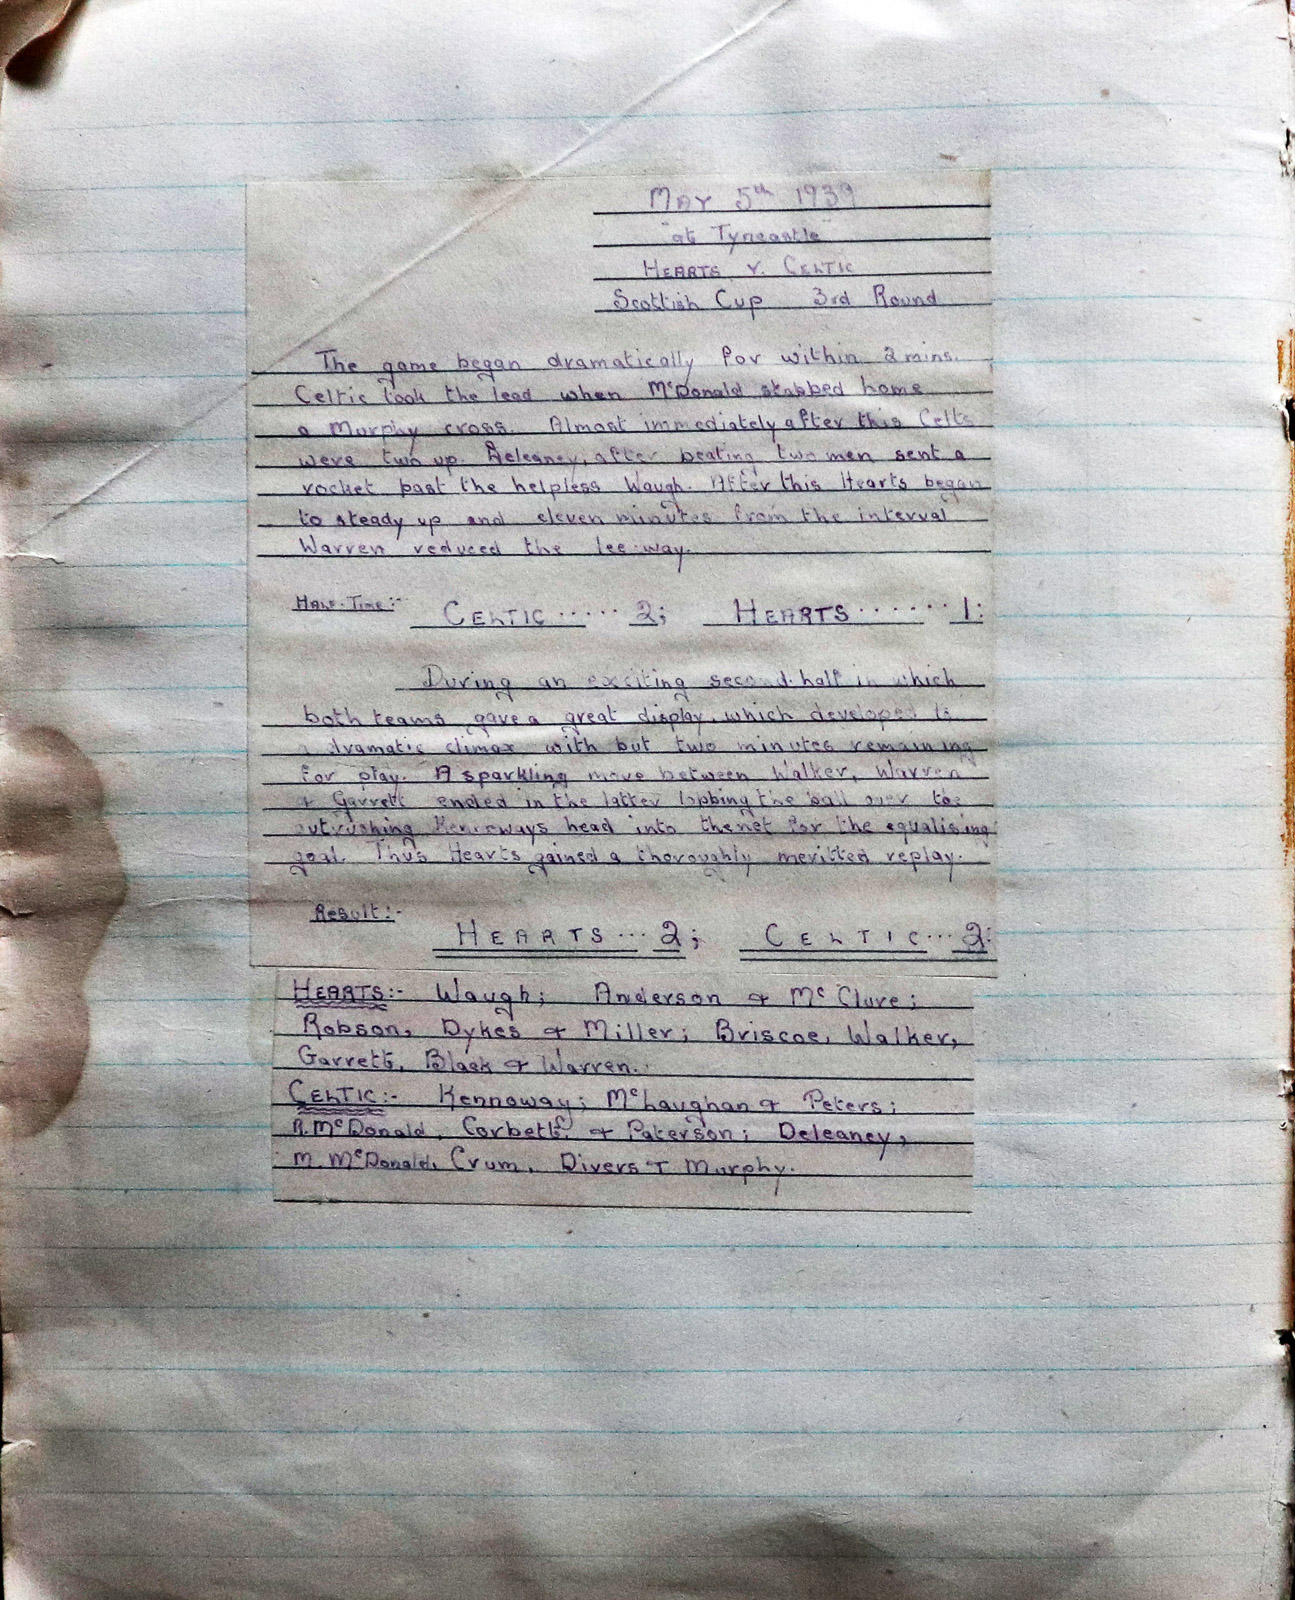 MAY 5th 1939
"at Tyncastle"
HEARTS V. CELTIC
Scottish Cup 3rd Round
The game began dramatically for within 2 mins.
Celtic took the lead when McDonald stabbed home
a Murphy cross. Almost immediately after this Celts
were two up. Deleaney, after beating two men sent a
rocket past the helpless Waugh. After this Hearts began
to steady up and eleven minutes from the interval
Warren reduced the lee-way.
HALF-TIME:- CELTIC ..... 2; HEARTS ...... 1:
During an exciting second-half in which
both teams gave a great display, which developed to
a dramatic climax with but two minutes remaining
for play. A sparkling move between Walker, Warren
& Garrett ended in the latter lobbing the ball over the
outrushing Kennoways head into the net for the equalising
goal. Thus Hearts gained a thoroughly meritted replay.
Result:- HEARTS ... 2; CELTIC ... 2:
HEARTS:- Waugh; Anderson & McClure;
Robson, Dykes & Miller; Briscoe, Walker,
Garrett, Black & Warren.
CELTIC:- Kennoway; McLaughan & Peters;
R. McDonald, Corbett, & Paterson; Deleaney,
M. McDonald, Crum, Divers & Murphy.